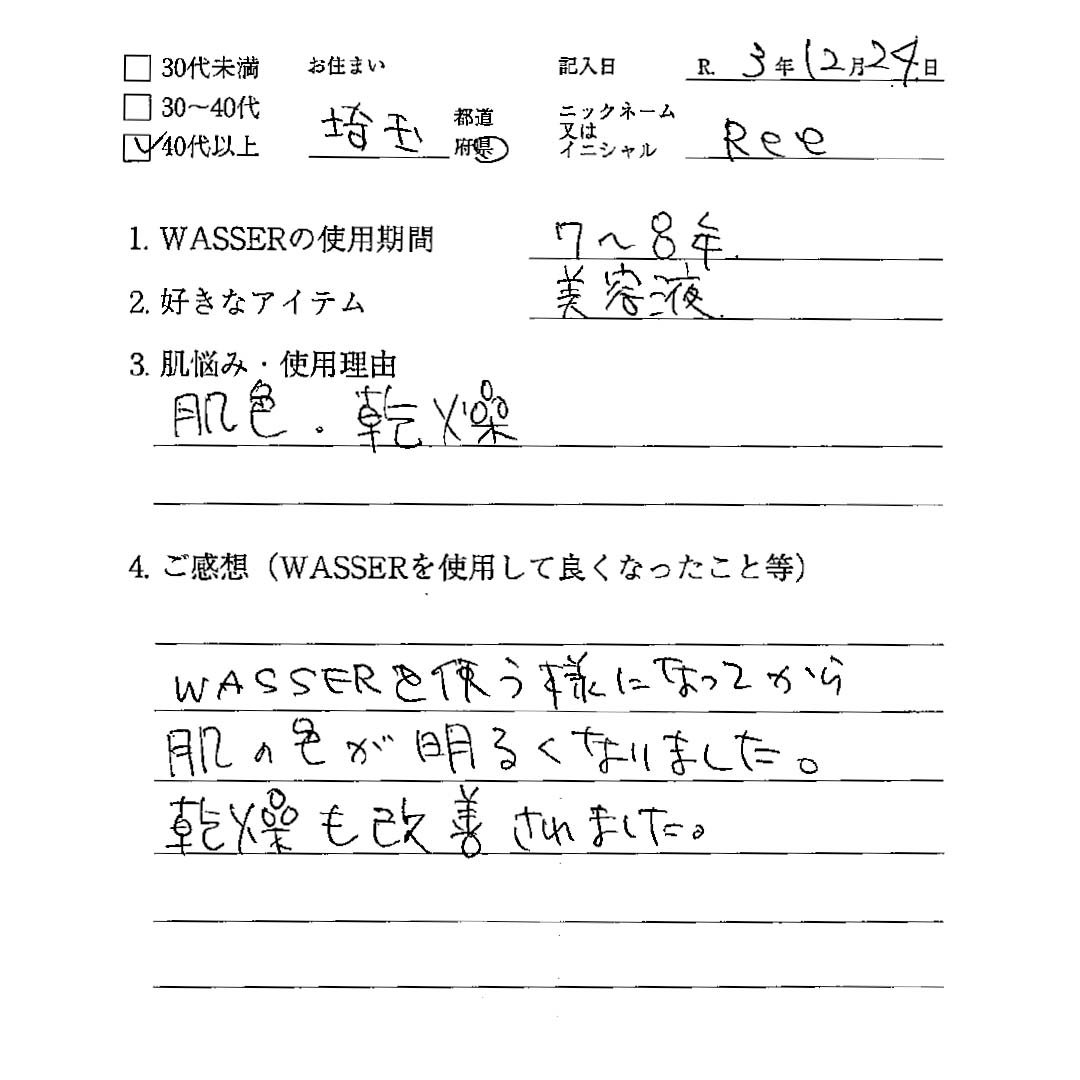 30代未満 お住まい 記入日 R. 3年12月24日
30〜40代 埼玉 都道府県 ニックネーム又はイニシャル Ree
✓40代以上
1. WASSERの使用期間 7〜8年
2. 好きなアイテム 美容液
3. 肌悩み・使用理由
肌色・乾燥
4. ご感想（WASSERを使用して良くなったこと等）
WASSERを使う様になってから
肌の色が明るくなりました。
乾燥も改善されました。